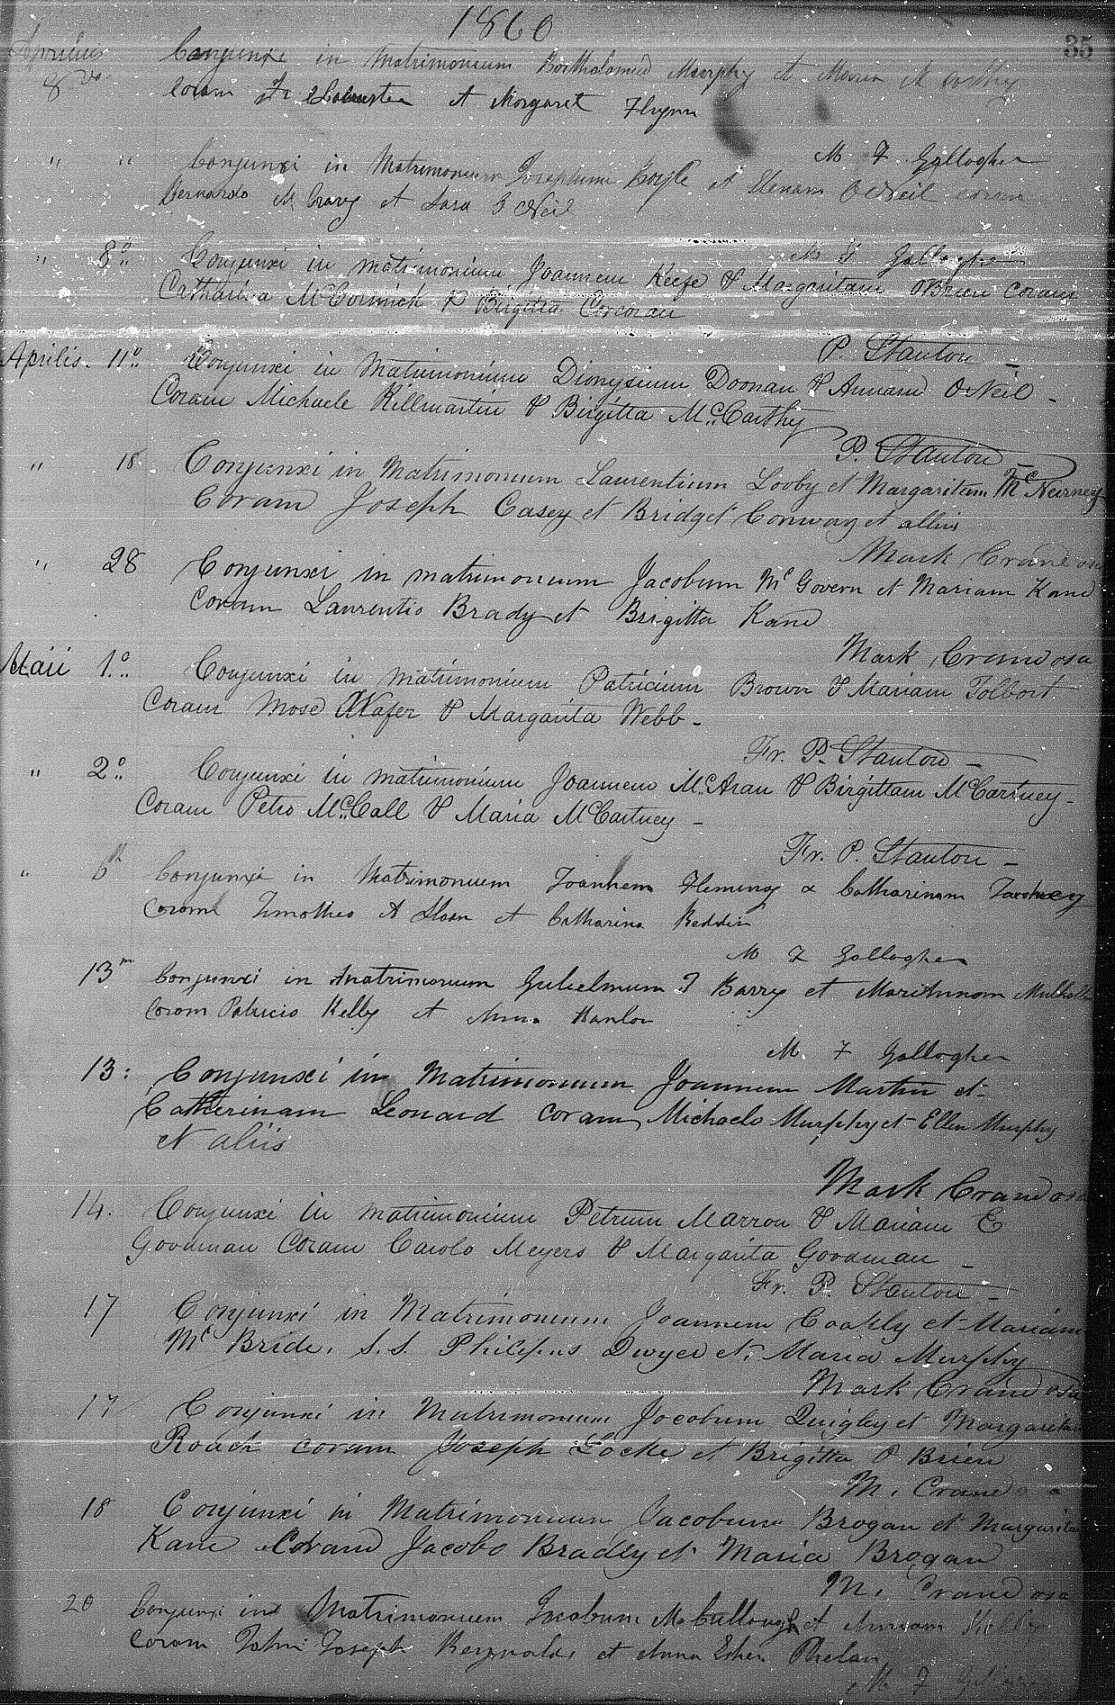 1860
35
Aprilis Conjunxi in Matrimonium Bartholomeum Murphy et Maria McCarthy
8vo coram et Margaret Flynn
M F Gallagher
" " Conjunxi in Matrimonium Josephum Boyle et Elenam O Neil coram
Bernardo et Sara O Neil
M F Gallagher
" 8o Conjunxi in matrimonium Joannem Keefe & Margaritam O'Brien Coram
Catharina McCormick & Birgitta Corcoran
P. Stanton
Aprilis. 11o Conjunxi in Matrimonium Dionysium Doonan & Annam O'Neil -
Coram Michaele Killmartin & Birgitta McCarthy
P. Stanton -
" 18 Conjunxi in Matrimonium Laurentium Looby et Margaritam McNerney
Coram Joseph Casey et Bridget Conway et allis
Mark Crane osa
" 28 Conjunxi in matrimonium Jacobum Mc Govern et Mariam Kane
Coram Laurentio Brady et Brigitta Kane
Mark Crane osa
Maii 1o Conjunxi in matrimonium Patricium Brown & Mariam Tolbert
Coram Mose & Margarita Webb -
Fr. P. Stanton -
" 2o Conjunxi in matrimonium Joannem McAran & Birgittam McCartney -
Coram Petro McCall & Maria McCartney -
Fr. P. Stanton -
" 6th Conjunxi in Matrimonium Joannem Fleming & Catharinam
Coram Timotheo A Sloan et Catharina Reddin
M F Gallagher
13m Conjunxi in Matrimonium Gulielmum J Barry et MariAnnam
Coram Patricio Kelly et Anna Hanlon
M. F Gallagher
13: Conjunxi in Matrimonium Joannem Martin et
Catherinam Leonard coram Michaelo Murphy et Ellen Murphy
et aliis
Mark Crane osa
14. Conjunxi in matrimonium Petrum Marron & Mariam E
Goodman Coram Carolo Meyers & Margarita Goodman -
Fr. P. Stanton -
17 Conjunxi in Matrimonium Joannem Coakly et Mariam
Mc Bride. S.S. Philippus Dwyer et Maria Murphy
Mark Crane osa
17 Conjunxi in Matrimonium Jacobum Quigley et Margaritam
Roach coram Joseph Locke et Brigitta O Brien
M. Crane
18 Conjunxi in Matrimonium Jacobum Brogan et Margaritam
Kane Coram Jacobo Bradly et Maria Brogan
M. Crane osa
20 Conjunxi in Matrimonium Jacobum McCullough et Annam
Coram John Joseph Reynolds et Anna Esher Phelan
M F Gallagher